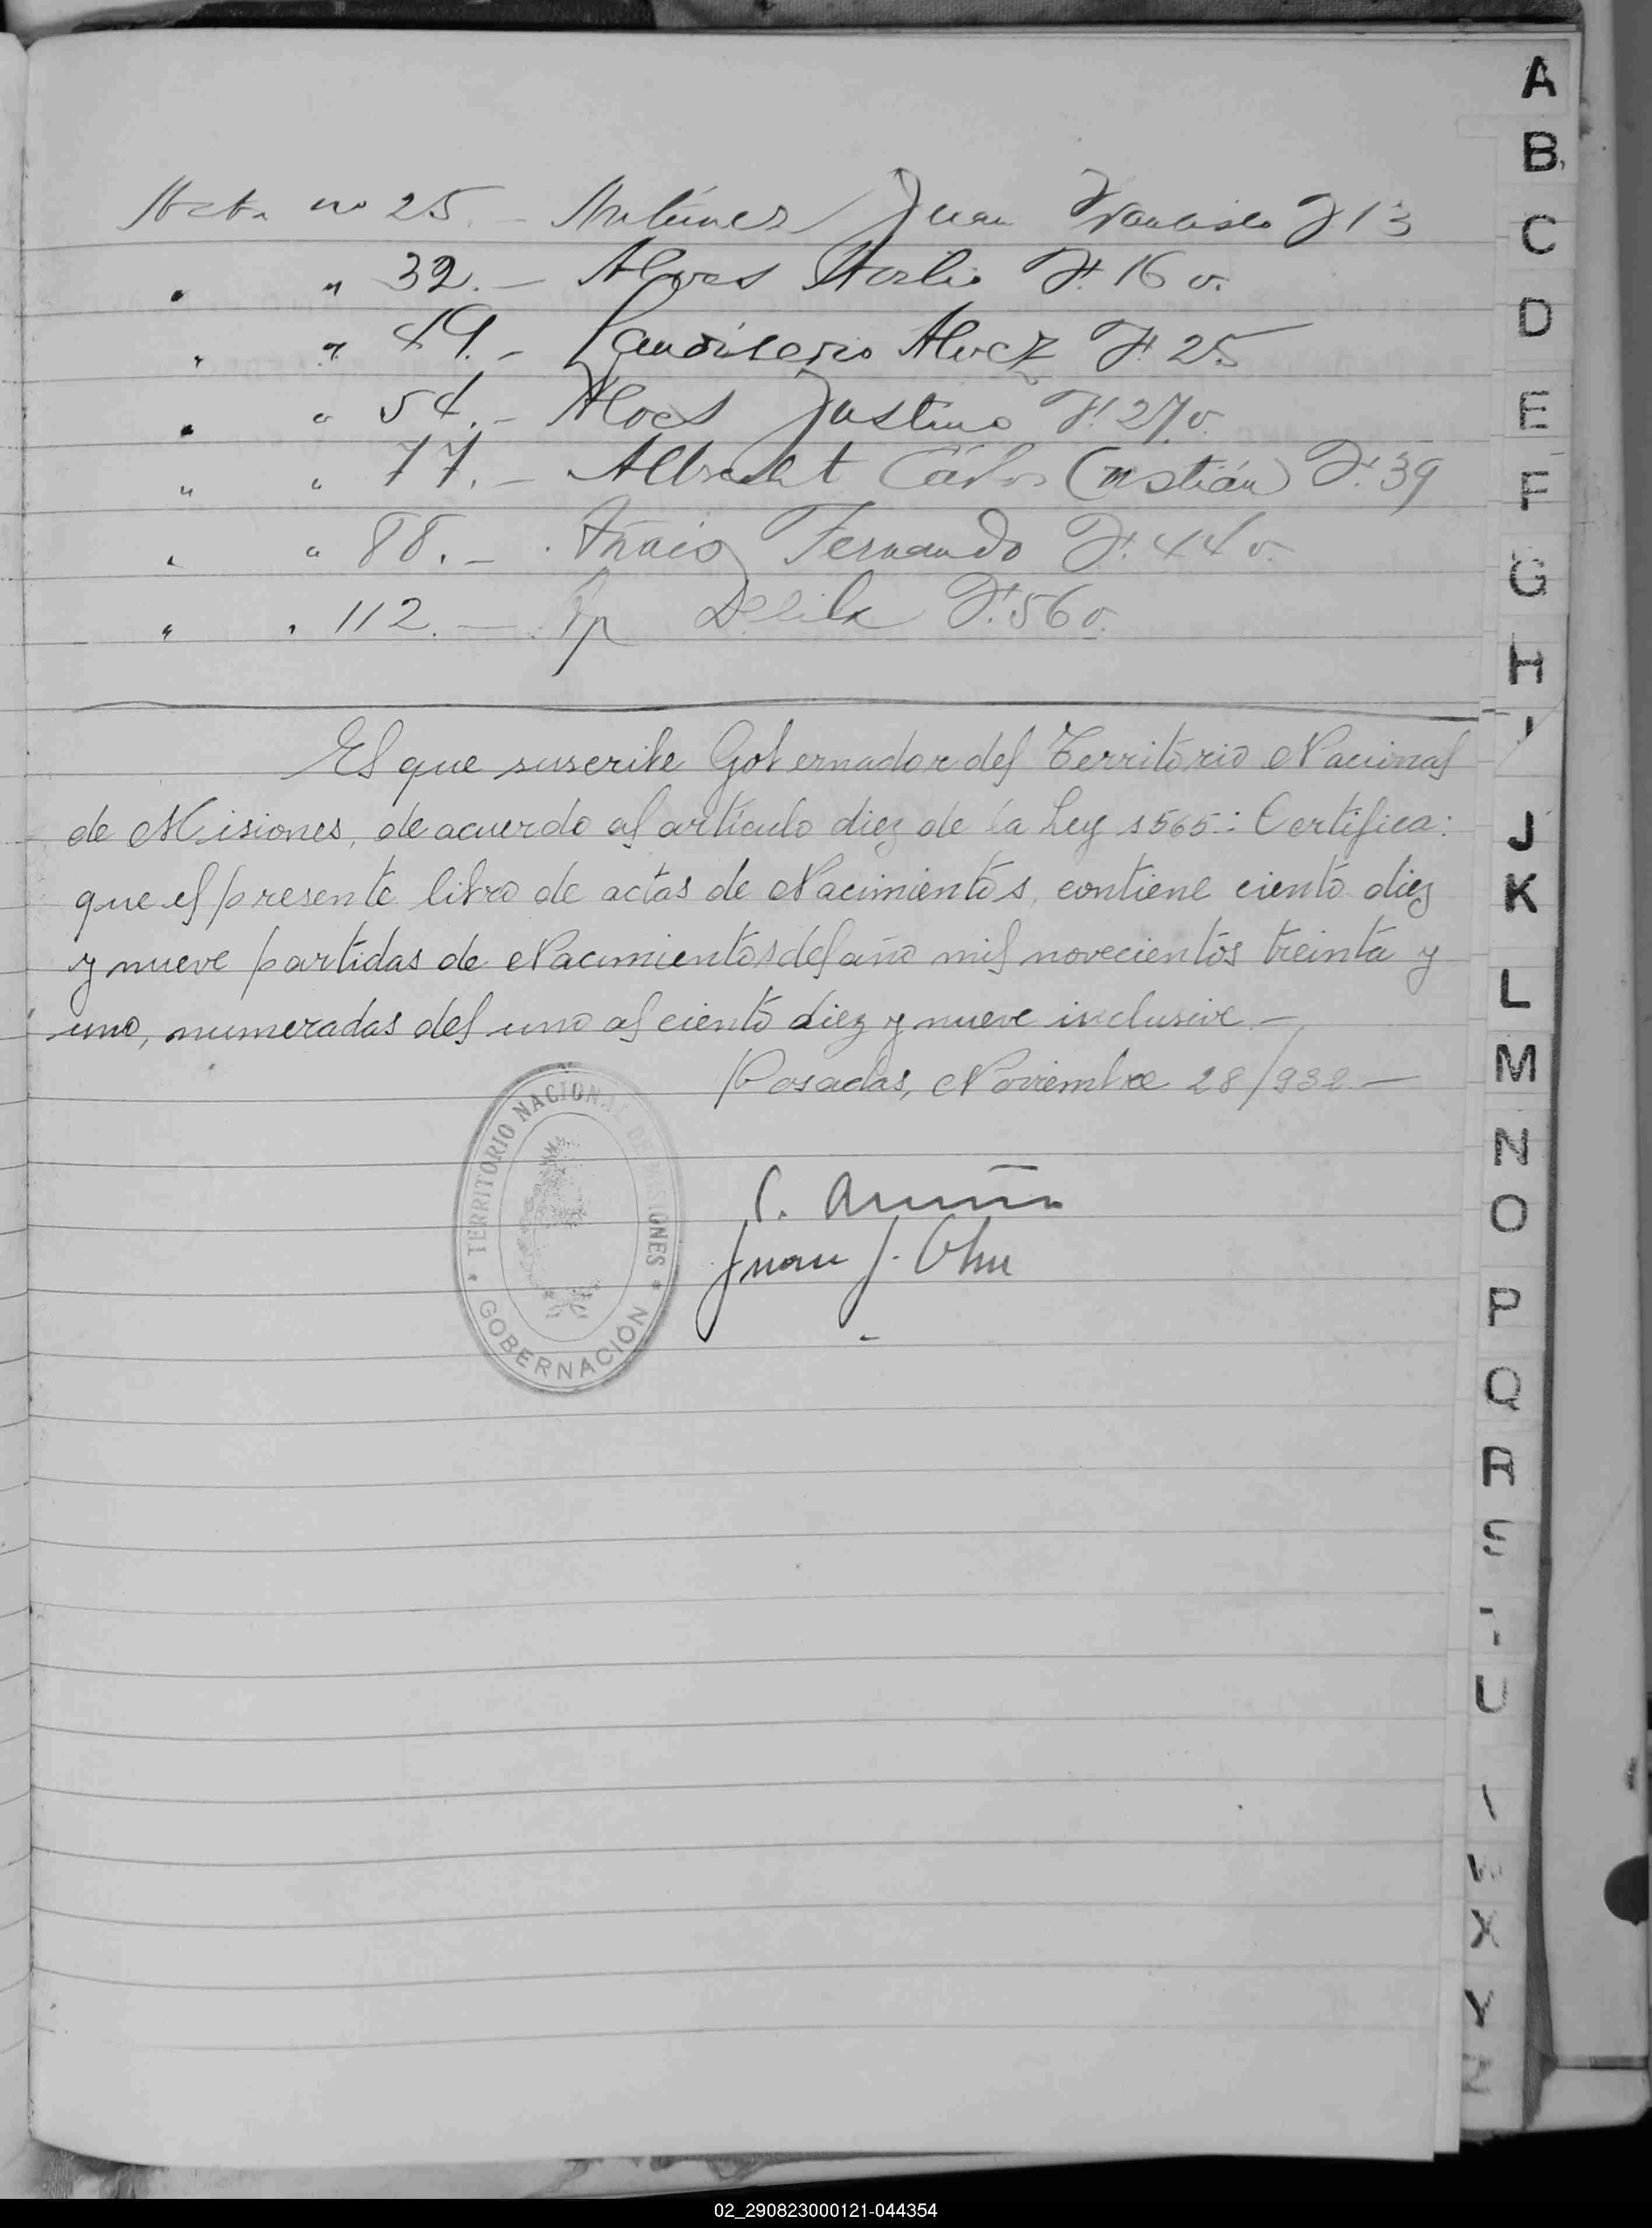 Acta no 25. - Antunez Juan Wanceslo F. 13
" " 32. - Alves Atalio F. 16 v.
" " 49. - Alvez F. 25
" " 54. - Alves Justino F. 27 v.
" " 77. - Albrecht Cárlos Cristián F. 39
" " 88. - Fernando F. 44 v.
" " 112. - Delila F. 56 v.
El que suscribe Gobernador del Território Nacional
de Misiones, de acuerdo al artículo diez de la Ley 1565: Certifica:
que el presente libro de actas de Nacimientos, contiene ciento diez
y nueve partidas de Nacimientos del año mil novecientos treinta y
uno, numeradas del uno al ciento diez y nueve inclusive.-
Posadas, Noviembre 28/932.-
TERRITORIO NACIONAL DE MISIONES
* GOBERNACIÓN *
C. Acuña
Juan J.
A
B
C
D
E
F
G
H
I
J
K
L
M
N
O
P
Q
R
S
U
W
X
Y
Z
02_290823000121-044354